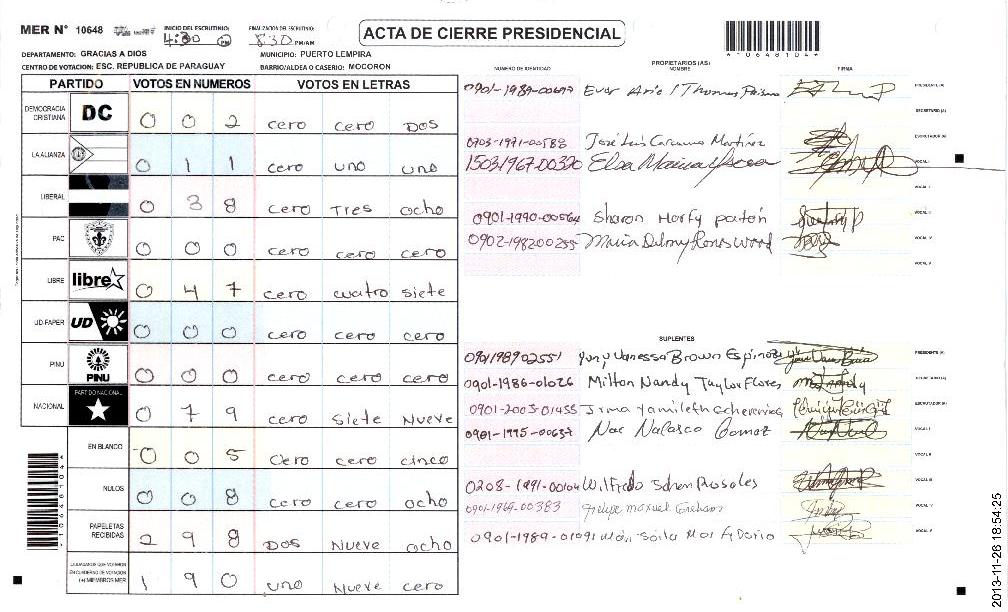 MER N° 10648
INICIO DEL ESCRUTINIO: 4:30 PM
FINALIZACION DEL ESCRUTINIO: 8:30 PM/AM
ACTA DE CIERRE PRESIDENCIAL
*10648104*
DEPARTAMENTO: GRACIAS A DIOS
MUNICIPIO: PUERTO LEMPIRA
CENTRO DE VOTACION: ESC. REPUBLICA DE PARAGUAY
BARRIO/ALDEA O CASERIO: MOCORON
PARTIDO VOTOS EN NUMEROS VOTOS EN LETRAS
DEMOCRACIA CRISTIANA DC 0 0 2 cero cero DOS
LA ALIANZA 0 1 1 cero uno uno
LIBERAL 0 3 8 cero Tres ocho
PAC 0 0 0 cero cero cero
LIBRE libre 0 4 7 cero cuatro siete
UD-FAPER UD 0 0 0 cero cero cero
PINU PINU 0 0 0 cero cero cero
NACIONAL PARTIDO NACIONAL 0 7 9 cero Siete Nueve
EN BLANCO 0 0 5 Cero cero cinco
NULOS 0 0 8 cero cero ocho
PAPELETAS RECIBIDAS 2 9 8 DOS Nueve ocho
CIUDADANOS QUE VOTARON EN CUADERNO DE VOTACION (+) MIEMBROS MER 1 9 0 uno Nueve cero
NUMERO DE IDENTIDAD PROPIETARIOS (AS) NOMBRE FIRMA
0901-1989-00697 Ever PRESIDENTE (A)
SECRETARIO (A)
0703-1971-00588 José Luis Carcamo Martínez ESCRUTADOR (A)
1503196700320 Elsa Maria VOCAL I
VOCAL II
0901-1990-00564 Sharon Harfy VOCAL III
0902-198200255 Maria Delmy Wood VOCAL IV
VOCAL V
SUPLENTES
0901198902551 Vanessa Brown Espinoza PRESIDENTE (A)
0901-1986-01026 Milton Nandy Taylor Flores SECRETARIO (A)
0901-2003-01455 Irma Yamileth Echeverria ESCRUTADOR (A)
0901-1995-00637 Noe Nolasco Gomez VOCAL I
VOCAL II
0208-1991-00104 Wilfredo Rosales VOCAL III
0901-1969-00383 Felipe VOCAL IV
0901-1989-01091 Dario VOCAL V
*10648104*
2013-11-26 18:54:25